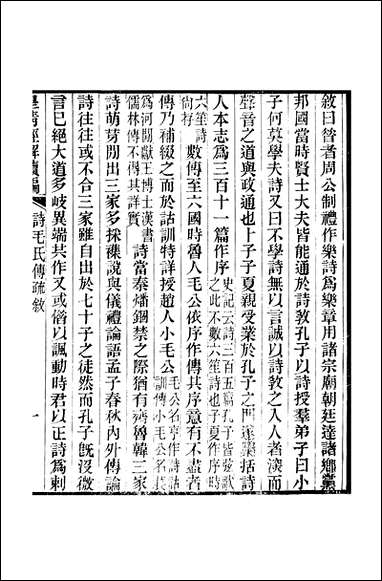 敘曰昔者周公制禮作樂詩爲樂章用諸宗廟朝廷達諸鄉黨
邦國當時賢士大夫皆能通於詩敎孔子以詩授羣弟子曰小
子何莫學夫詩又曰不學詩無以言誠以詩敎之入人者深而
聲音之道與政通也卜子子夏親受業於孔子之門遂檃括詩
人本志爲三百十一篇作序史記云詩三百五篇孔子皆弦歌之此不數六笙詩也子夏作序時
六笙詩尙存數傳至六國時魯人毛公依序作傳其序意有不盡者
傳乃補綴之而於詁訓特詳授趙人小毛公毛公名亨作詩詁訓傳小毛公名萇
爲河閒獻王博士漢書儒林傳不得其詳實詩當秦燔錮禁之際猶有齊魯韓三家
詩萌芽閒出三家多採襍說與儀禮論語孟子春秋內外傳論
詩往往或不合三家雖自出於七十子之徒然而孔子旣沒微
言已絕大道多岐異端共作又或借以諷動時君以正詩爲刺
皇淸經解續編
詩毛氏傳疏敘
一